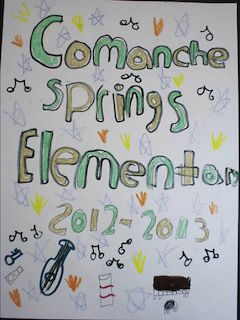 Comanche
springs
Elementary
2012-2013